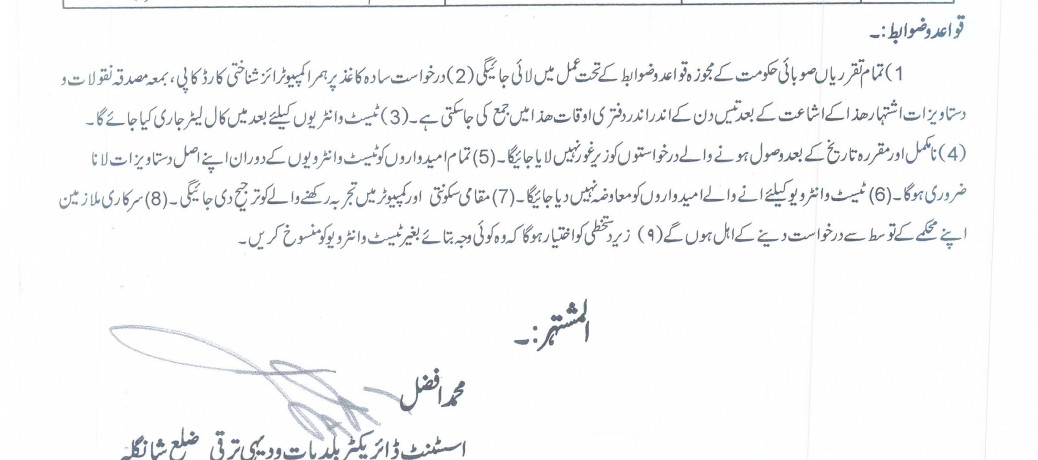 قواعد و ضوابط:۔
1) تمام تقرریاں صوبائی حکومت کے مجوزہ قواعد و ضوابط کے تحت عمل میں لائی جائیگی (2) درخواست سادہ کاغذ پر ہمرا کمپیوٹرائز شناختی کارڈ کاپی، بمعہ مصدقہ نقولات و
دستاویزات اشتہار ھذا کے اشاعت کے بعد تیس دن کے اندر اندر دفتری اوقات ھذا میں جمع کی جاسکتی ہے۔ (3) ٹیسٹ و انٹریوں کیلئے بعد میں کال لیٹر جاری کیا جائے گا۔
(4) نامکمل اور مقررہ تاریخ کے بعد وصول ہونے والے درخواستوں کو زیر غور نہیں لایا جائیگا۔ (5) تمام امیدواروں کو ٹیسٹ و انٹرویوں کے دوران اپنے اصل دستاویزات لانا
ضروری ہوگا۔ (6) ٹیسٹ و انٹرویو کیلئے انے والے امیدواروں کو معاوضہ نہیں دیا جائیگا۔ (7) مقامی سکونتی اور کمپیوٹر میں تجربہ رکھنے والے کو ترجیح دی جائیگی۔ (8) سرکاری ملازمین
اپنے محکمے کے توسط سے درخواست دینے کے اہل ہوں گے (۹) زیر دستخطی کو اختیار ہوگا کہ وہ کوئی وجہ بتائے بغیر ٹیسٹ و انٹرویو کو منسوخ کریں۔
المشتہر:۔
محمد افضل
اسسٹنٹ ڈائریکٹر بلدیات و دیہی ترقی ضلع شانگلہ